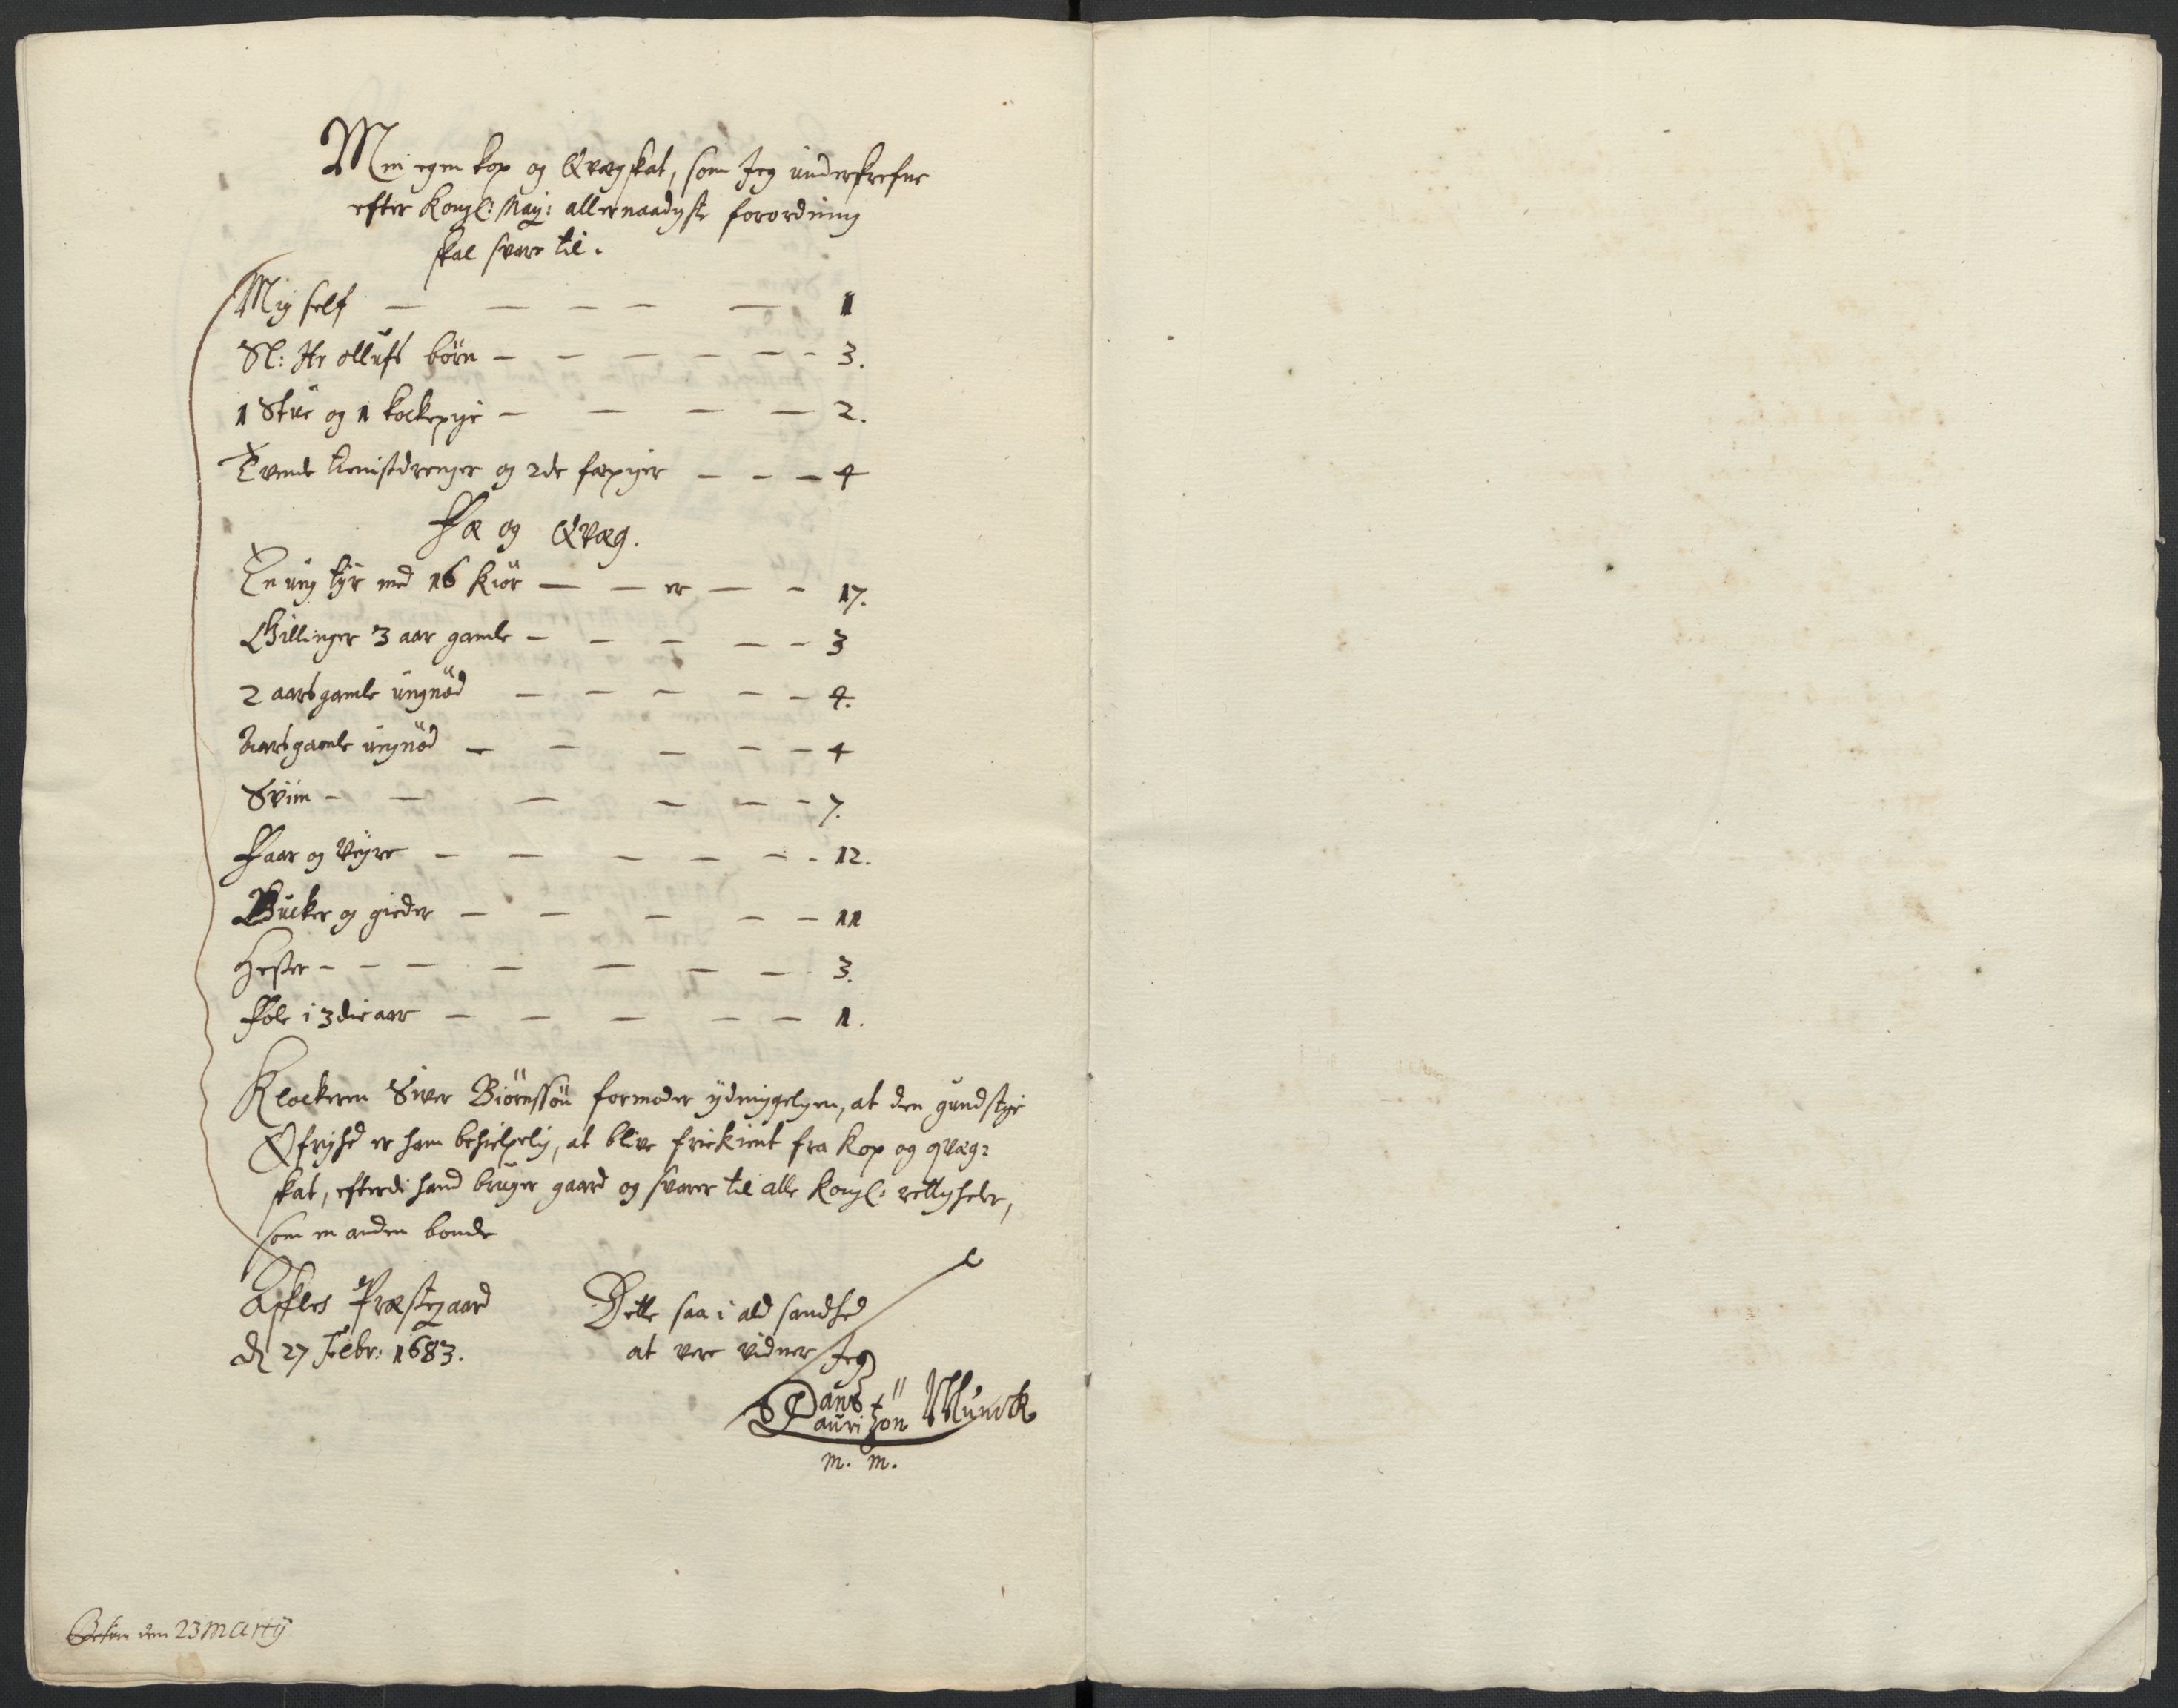 Min egen kop og Qvægskat, som Jeg underskrefne
efter Kongl: May: allernaadigste forordning
skal svare til.
Mig self — — — — — 1
Sl: Hr ollufs börn — — — — — — 3.
1 Stue og 1 kockepige — — — — 2.
Tvende tienistdrenger og 2de fæpiger — — — 4
Fæ og Qvæg.
En ung tyr med 16 kiör — — er — — 17.
Gillinger 3 aar gamle — — — — — 3
2 aarsgamle ungnöd — — — — — 4.
Aarsgamle ungnöd — — — — — 4
Sviin — — — — — — 7.
Faar og Veyre — — — — — — 12.
Bucker og gieder — — — — — 11
Hester — — — — — — — 3.
Fole i 3die aar — — — — — 1.
Klockeren Siver Biörnssön formoder ydmygeligen, at den gunstige
Öfrighed er ham behielpelig, at blive friekient fra kop og qvæg-
skat, efterdi hand bruger gaard og svarer til alle kongl: rettigheder,
som en anden bonde
Præstegaard
d 27 Febr: 1683.
Dette saa i ald sandhed
at vere vidner Jeg
Hans
Lauritzön Munck
m. m.
den 23 Martij